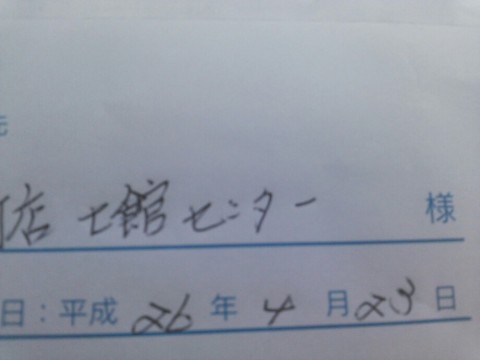 店 館センター 様
日：平成 26 年 4 月 23 日